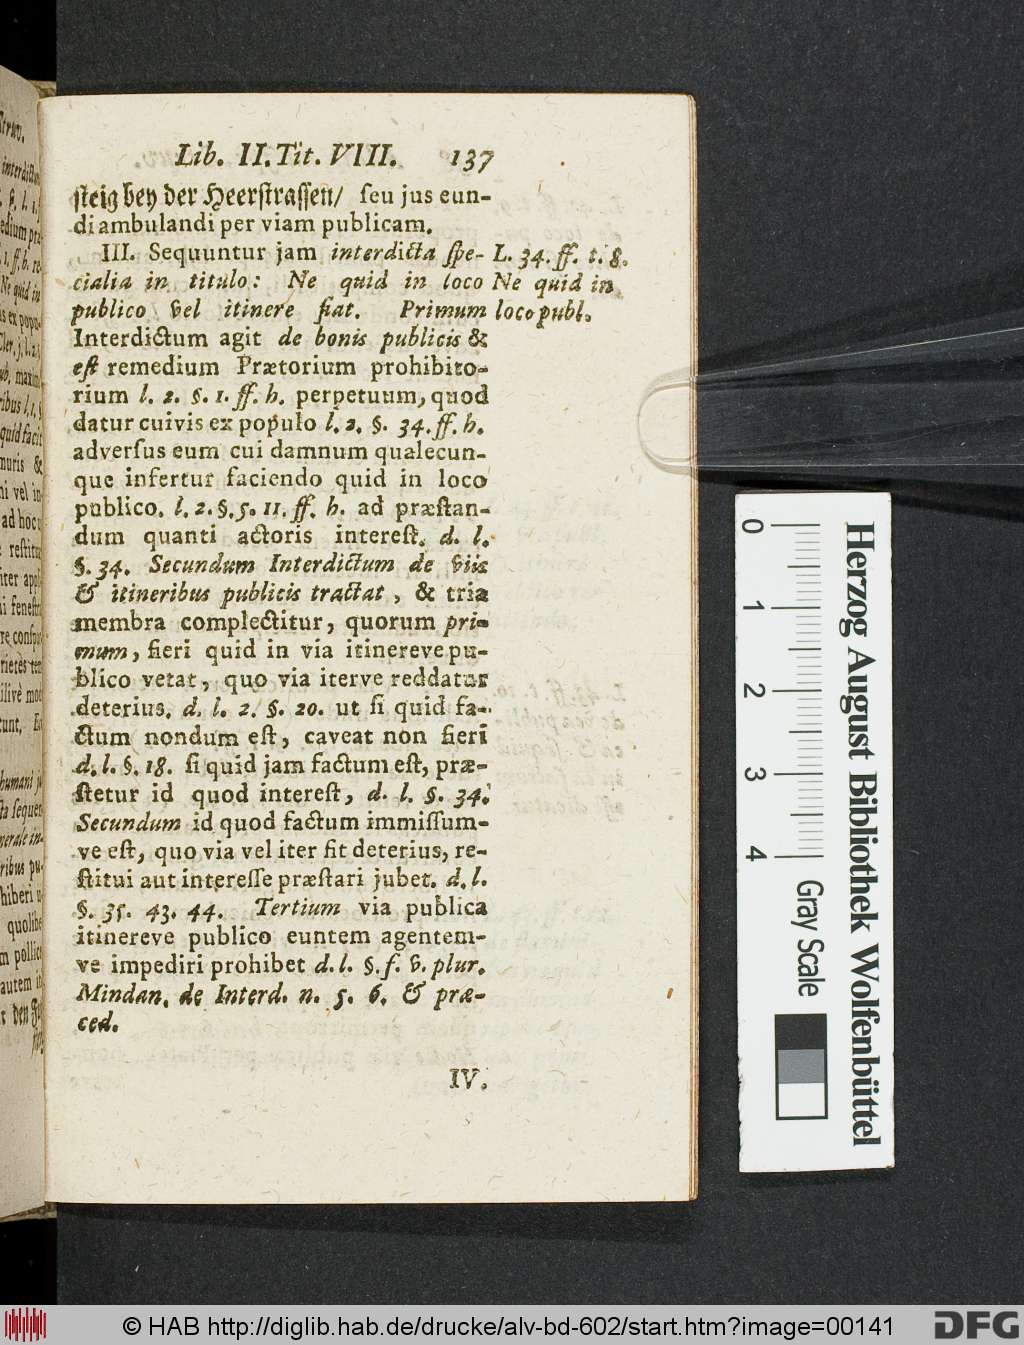 Lib. II. Tit. VIII. 137
steig bey der Heerstrassen/ ſeu jus eun-
di ambulandi per viam publicam.
III. Sequuntur jam interdicta ſpe-
cialia in titulo: Ne quid in loco
publico vel itinere fiat. Primum
Interdictum agit de bonis publicis &
eſt remedium Prætorium prohibito-
rium l. 2. §. 1. ff. h. perpetuum, quod
datur cuivis ex populo l. 2. §. 34. ff. h.
adverſus eum cui damnum qualecun-
que infertur faciendo quid in loco
publico. l. 2. §. 5. 11. ff. h. ad præſtan-
dum quanti actoris intereſt. d. l.
§. 34. Secundum Interdictum de viis
& itineribus publicis tractat, & tria
membra complectitur, quorum pri-
mum, fieri quid in via itinereve pu-
blico vetat, quo via iterve reddatur
deterius. d. l. 2. §. 20. ut ſi quid fa-
ctum nondum eſt, caveat non fieri
d. l. §. 18. ſi quid jam factum eſt, præ-
ſtetur id quod intereſt, d. l. §. 34.
Secundum id quod factum immiſſum-
ve eſt, quo via vel iter fit deterius, re-
ſtitui aut intereſſe præſtari jubet. d. l.
§. 35. 43. 44. Tertium via publica
itinereve publico euntem agentem-
ve impediri prohibet d. l. §. f. v. plur.
Mindan. de Interd. n. 5. 6. & præ-
ced.
IV.
L. 34. ff. t. 8.
Ne quid in
loco publ.
0
1
2
3
4
Gray Scale
Herzog August Bibliothek Wolfenbüttel
© HAB http://diglib.hab.de/drucke/alv-bd-602/start.htm?image=00141
DFG